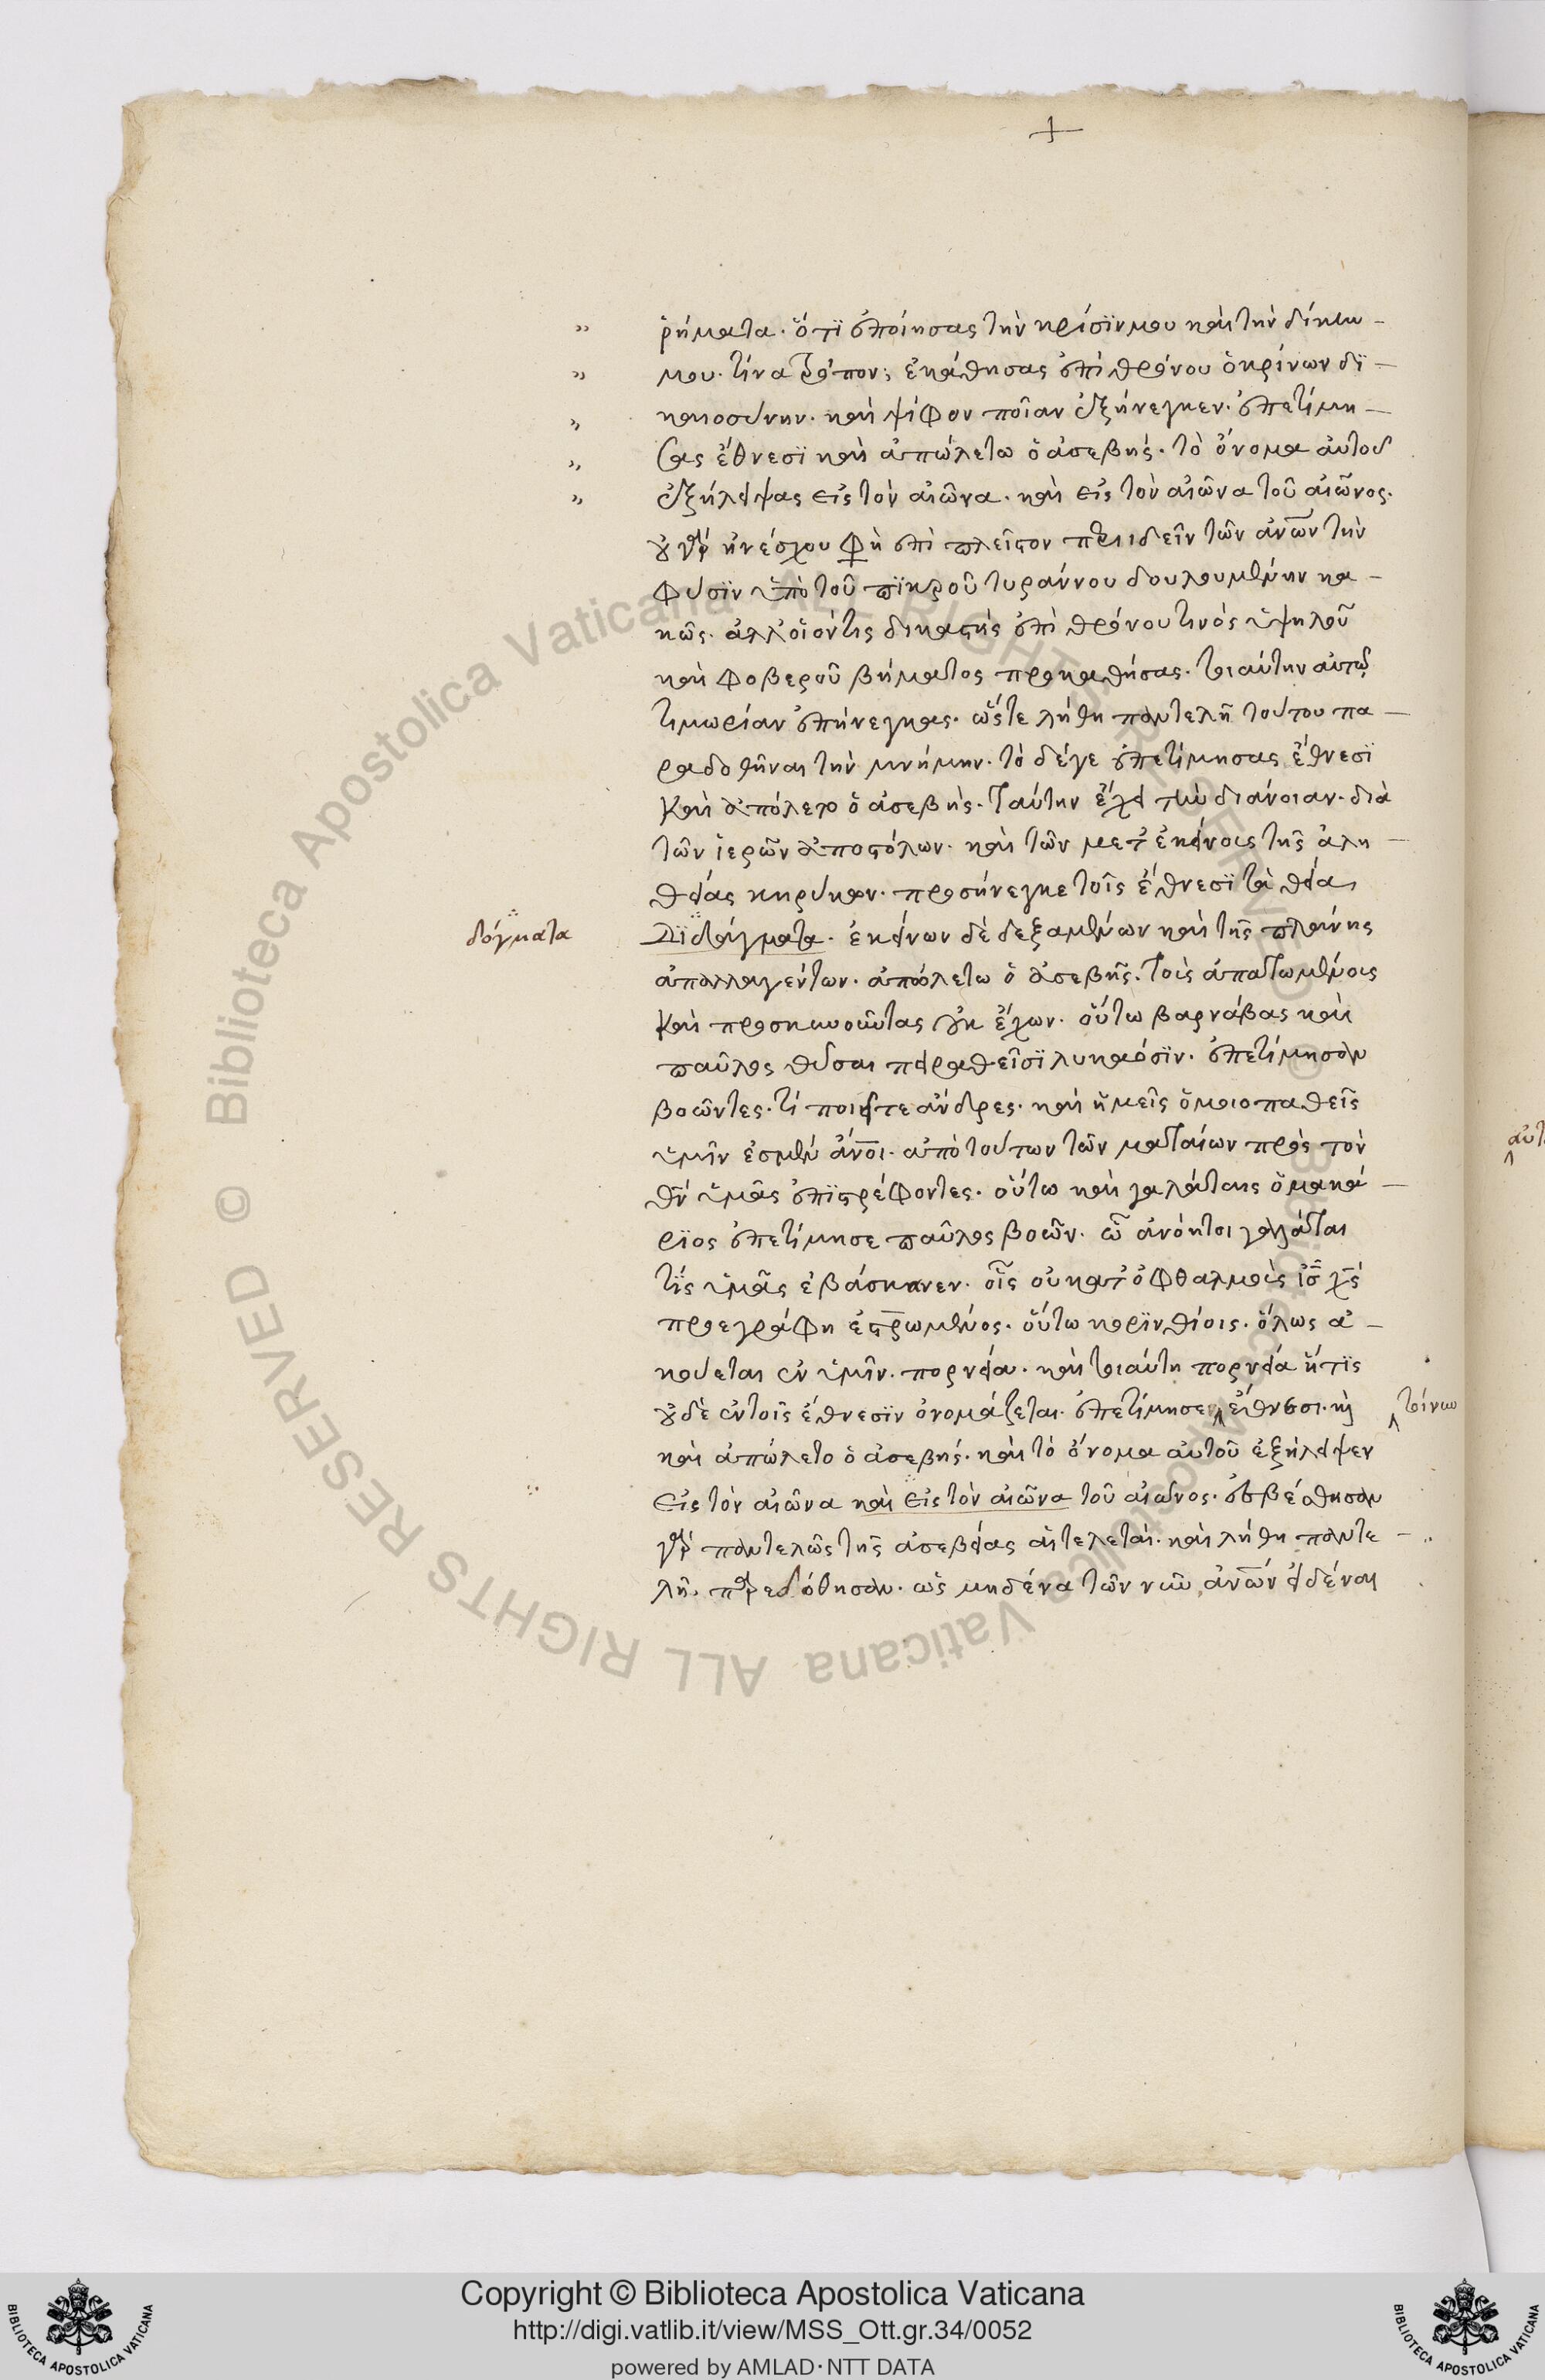 +
ῥήματα. ὅτϊ ἐποίησας τὴν κρίσϊν μου καὶ τὴν δίκην
μου. τίνα τρόπον; ἐκάθησας ἐπὶ θρόνου ὁ κρίνων δϊ
καιοσύνην. καὶ ψίφον ποῖαν ἐξήνεγκεν. ἐπετίμη
σας ἔθνεσϊ καὶ ἀπώλετω ὁ ἀσεβής. τὸ ὄνομα αὐτοῦ
ἐξήλειψας εἰς τὸν αἰῶνα. καὶ εἰς τὸν αἰῶνα τοῦ αἰῶνος.
οὐ γὰρ ἠνέσχου φὴ ἐπὶ πλεῖστον περιιδεῖν τῶν ἀνων τὴν
φύσϊν ὑπὸ τοῦ πϊκροῦ τυράννου δουλουμένην κα
κῶς. ἀλλ' οἷόν τις δικαστὴς ἐπὶ θρόνου τινός ὑψηλοῦ
καὶ φοβεροῦ βήματος προκαθήσας. τοιαύτην αὐτῶ
τιμωρίαν ἐπήνεγκας. ὥστε λήθη παντελῆ τούτου πα
ραδοθῆναι τὴν μνήμην. τὸ δέγε ἐπετίμησας ἔθνεσϊ
καὶ ἀπόλετο ὁ ἀσεβὴς. ταύτην ἔχει τὴν διάνοιαν. διὰ
τῶν ἱερῶν ἀποστόλων. καὶ τῶν μετ' ἐκείνοις τῆς ἀλη
θείας κηρύκων. προσήνεγκε τοῖς ἔθνεσϊ τὰ θεῖα
δόγματα
Δϊδάγματα. ἐκείνων δὲ δεξαμένων καὶ τῆς πλάνης
ἀπαλλαγέντων. ἀπόλετω ὁ ἀσεβῆς. τοὶς ἀπατωμένοις
καὶ προσκυνοῦντας οὐκ ἔχων. οὕτω βαρνάβας καὶ
παῦλος θῦσαι πειραθεῖσϊ λυκαόσϊν. ἐπετίμησαν
βοῶντες. τί ποιεῖτε ἄνδρες. καὶ ἡμεῖς ὁμοιοπαθεῖς
ὑμῖν ἐσμὲν ἄνοι. ἀπὸ τούτων τῶν ματαίων πρὸς τὸν
θν ὑμᾶς ἐπϊστρέφοντες. οὕτω καὶ γαλάταις ὁ μακά
ρϊος ἐπετίμησε παῦλος βοῶν. ὦ ἀνόητοι γαλάται
τίς ὑμᾶς ἐβάσκανεν. οἷς οὐ κατ' ὀφθαλμοὶς ισ χς
προεγράφη ἐστρωμένος. οὕτω κορϊνθίοις. ὅλως ἀ
κούεται ἐν ὑμῖν. πορνεία. καὶ τοιαύτη πορνεία ἥτϊς
οὐδὲ ἐν τοῖς ἔθνεσϊν ὀνομάζεται. ἐπετίμησε ἔθνεσι. καὶ τοίνυν
καὶ ἀπώλετο ὁ ἀσεβής. καὶ τὸ ὄνομα αὐτοῦ ἐξήλειψεν
εἰς τὸν αἰῶνα καὶ εἰς τὸν αἰῶνα τοῦ αἰῶνος. ἐσβέσθησαν
γὰρ παντελῶς τῆς ἀσεβείας αἱ τελεταὶ. καὶ λήθη παντε
λῆ. παρεδόθησαν. ὡς μηδένα τῶν νῦν ἀνων εἰδέναι
Copyright © Biblioteca Apostolica Vaticana
http://digi.vatlib.it/view/MSS_Ott.gr.34/0052
powered by AMLAD·NTT DATA